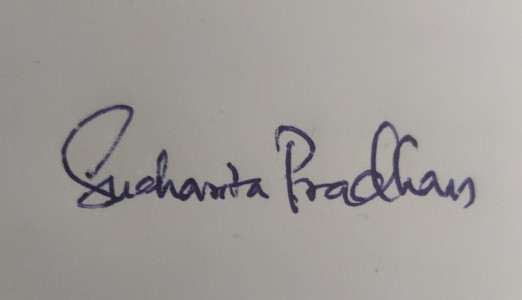 Sucharita Pradhan